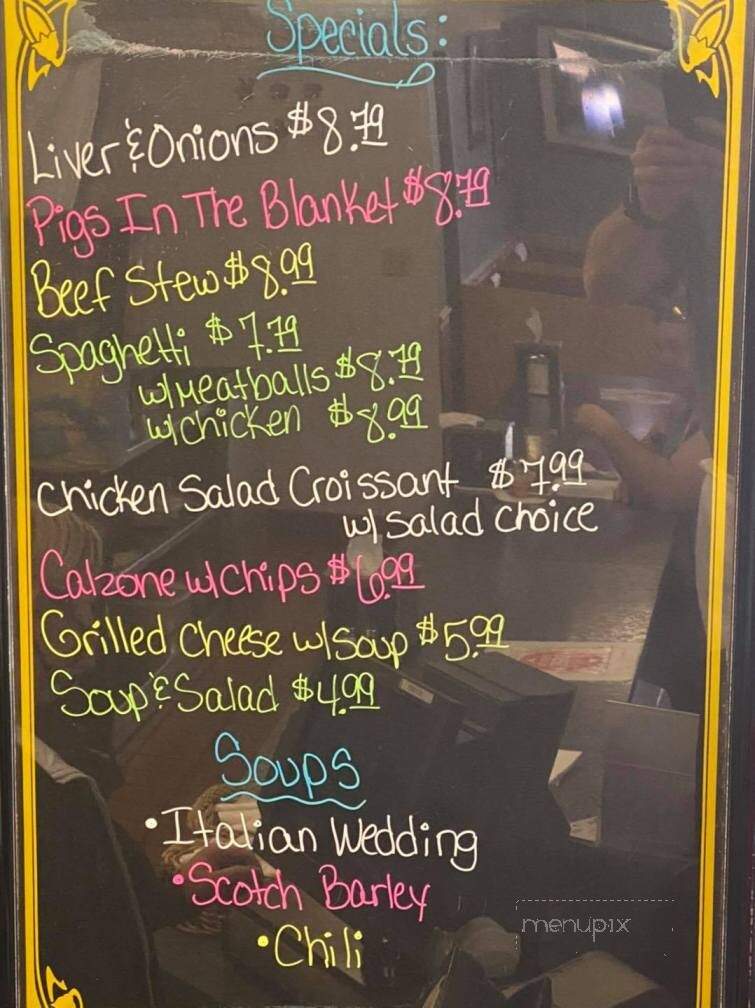 Specials:
Liver & Onions $8.79
Pigs In The Blanket $8.79
Beef Stew $8.99
Spaghetti $7.79
w/Meatballs $8.79
w/chicken $8.99
Chicken Salad Croissant $7.99
w/ Salad choice
Calzone w/chips $6.99
Grilled Cheese w/Soup $5.99
Soup & Salad $4.99
Soups
•Italian Wedding
•Scotch Barley
•Chili
menupix